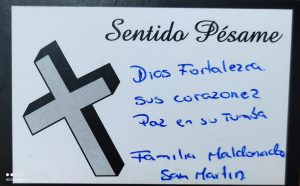 Sentido Pésame
Dios Fortalezca
sus corazonez
Paz en su Tumba
Familia Maldonado
San Martin